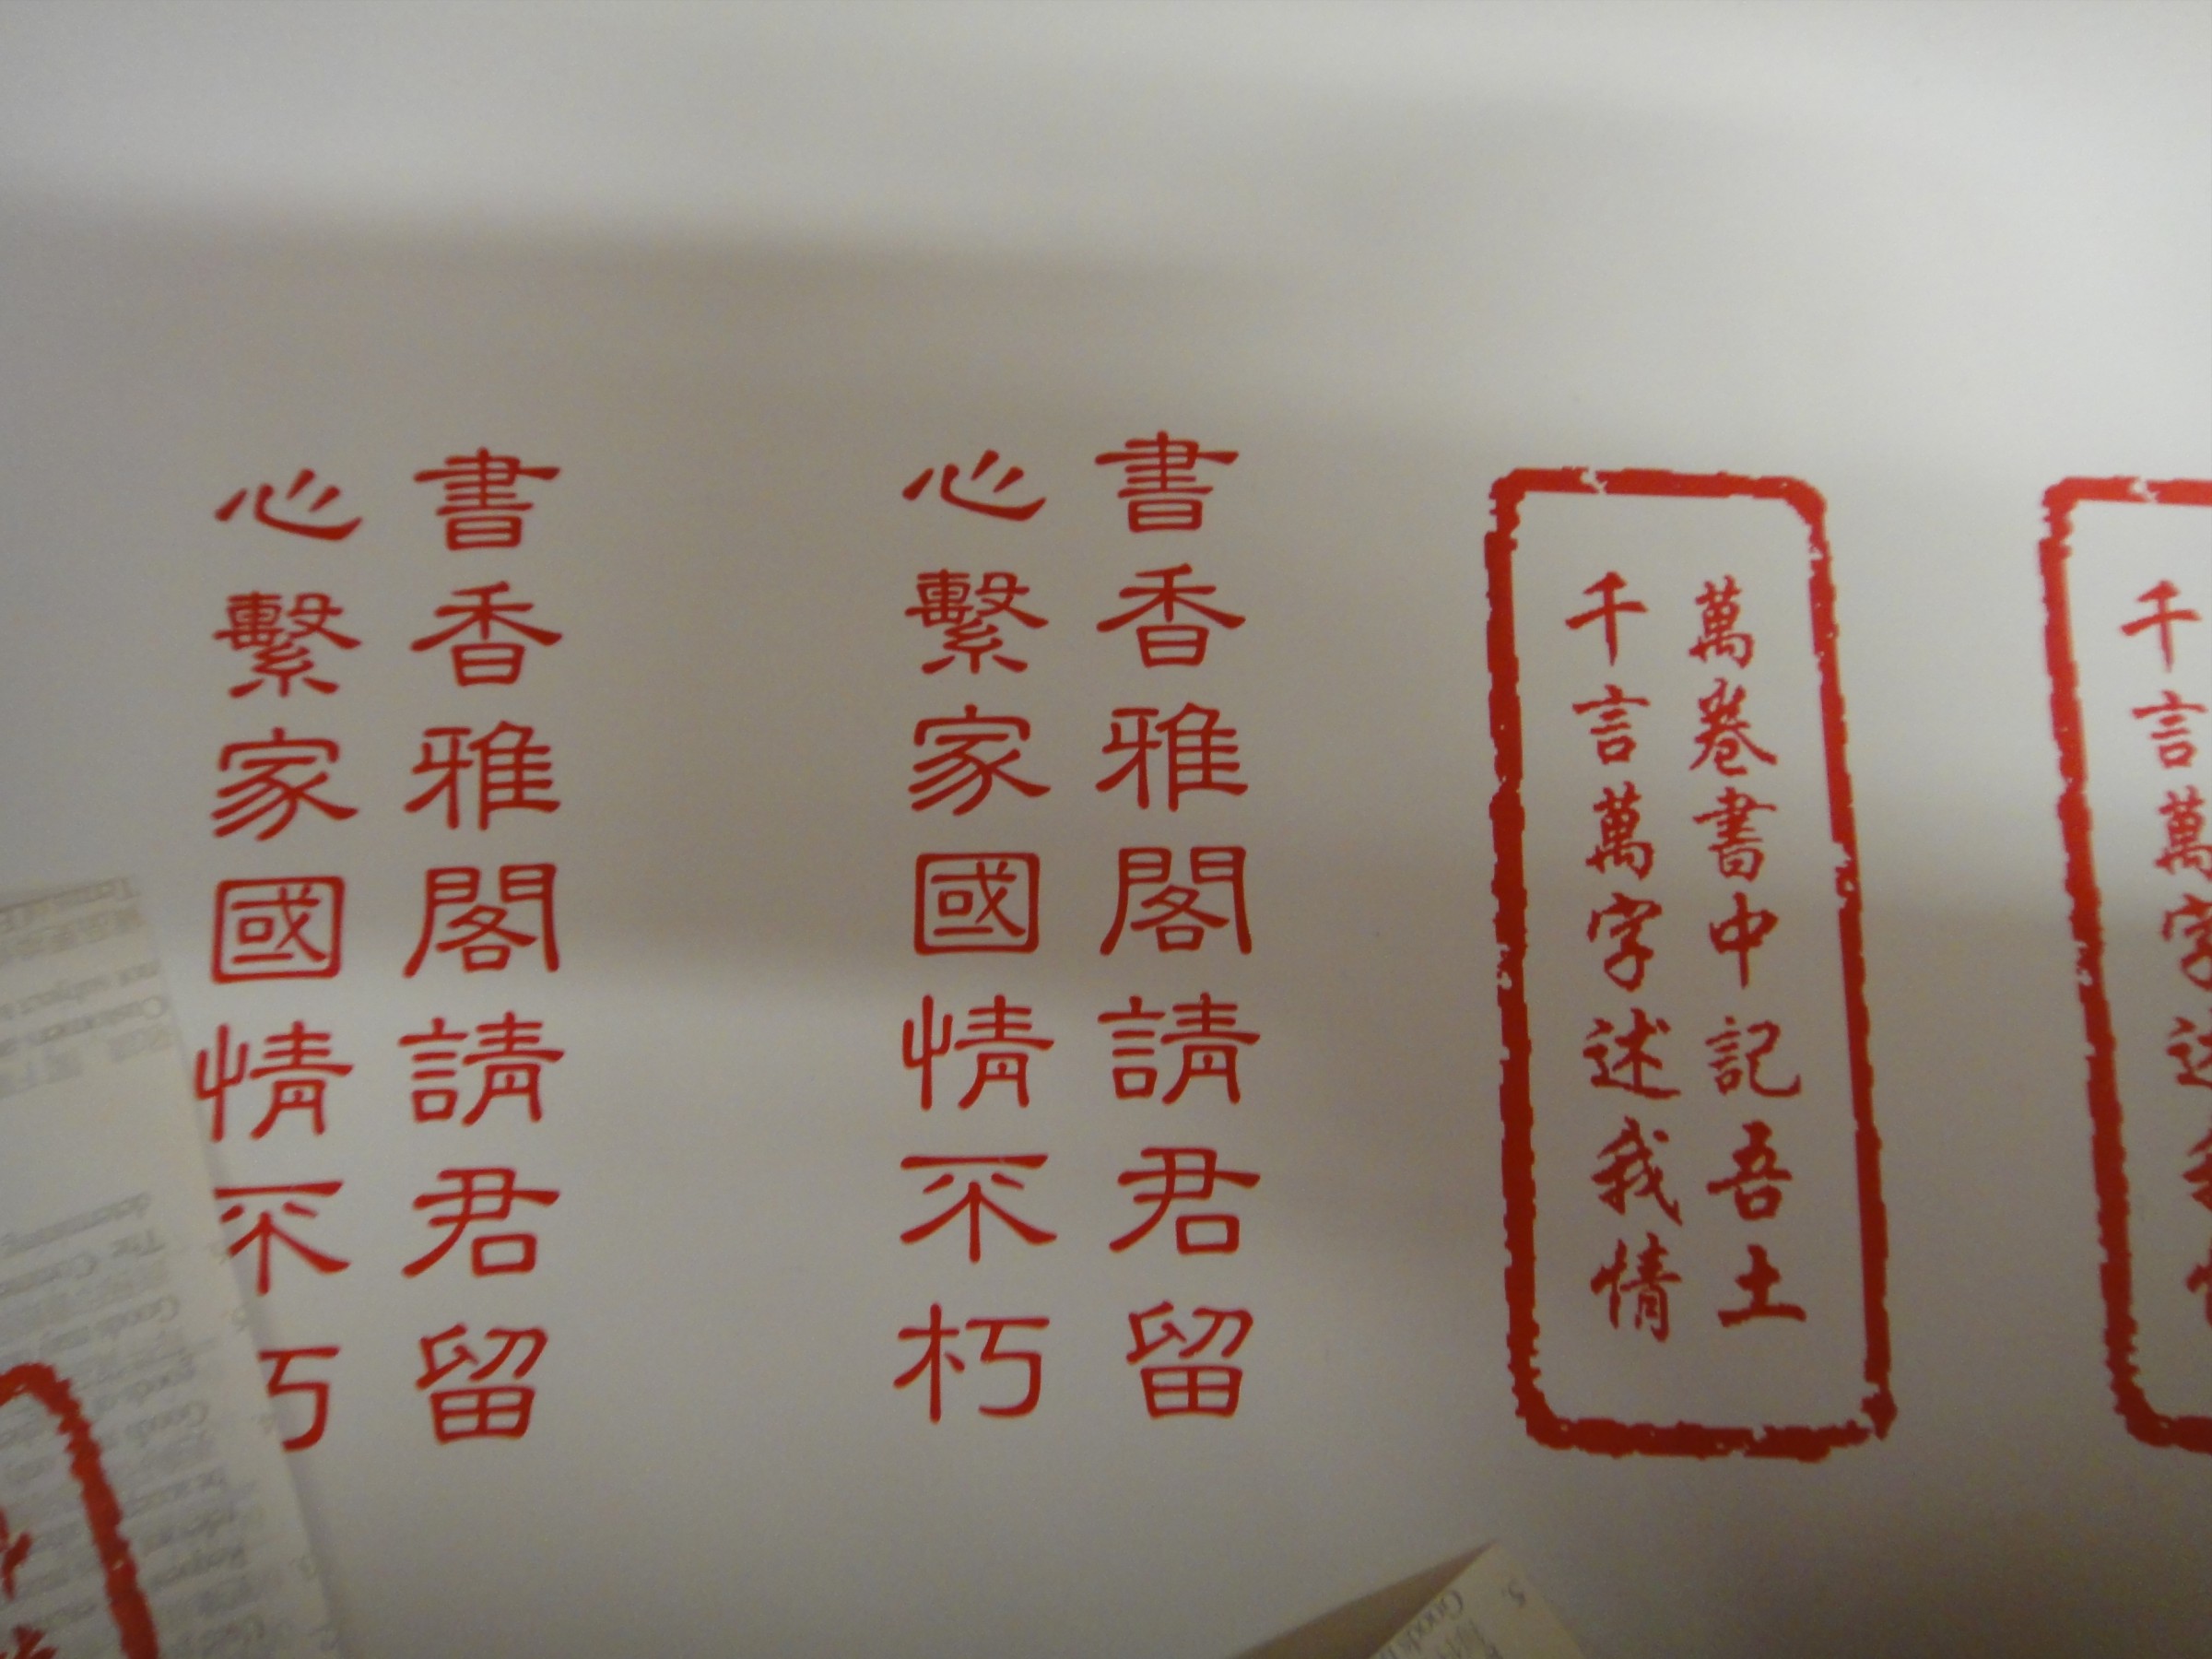 書香雅閣請君留
心繫家國情不朽
書香雅閣請君留
心繫家國情不朽
萬卷書中記吾土
千言萬字述我情
千言萬字述